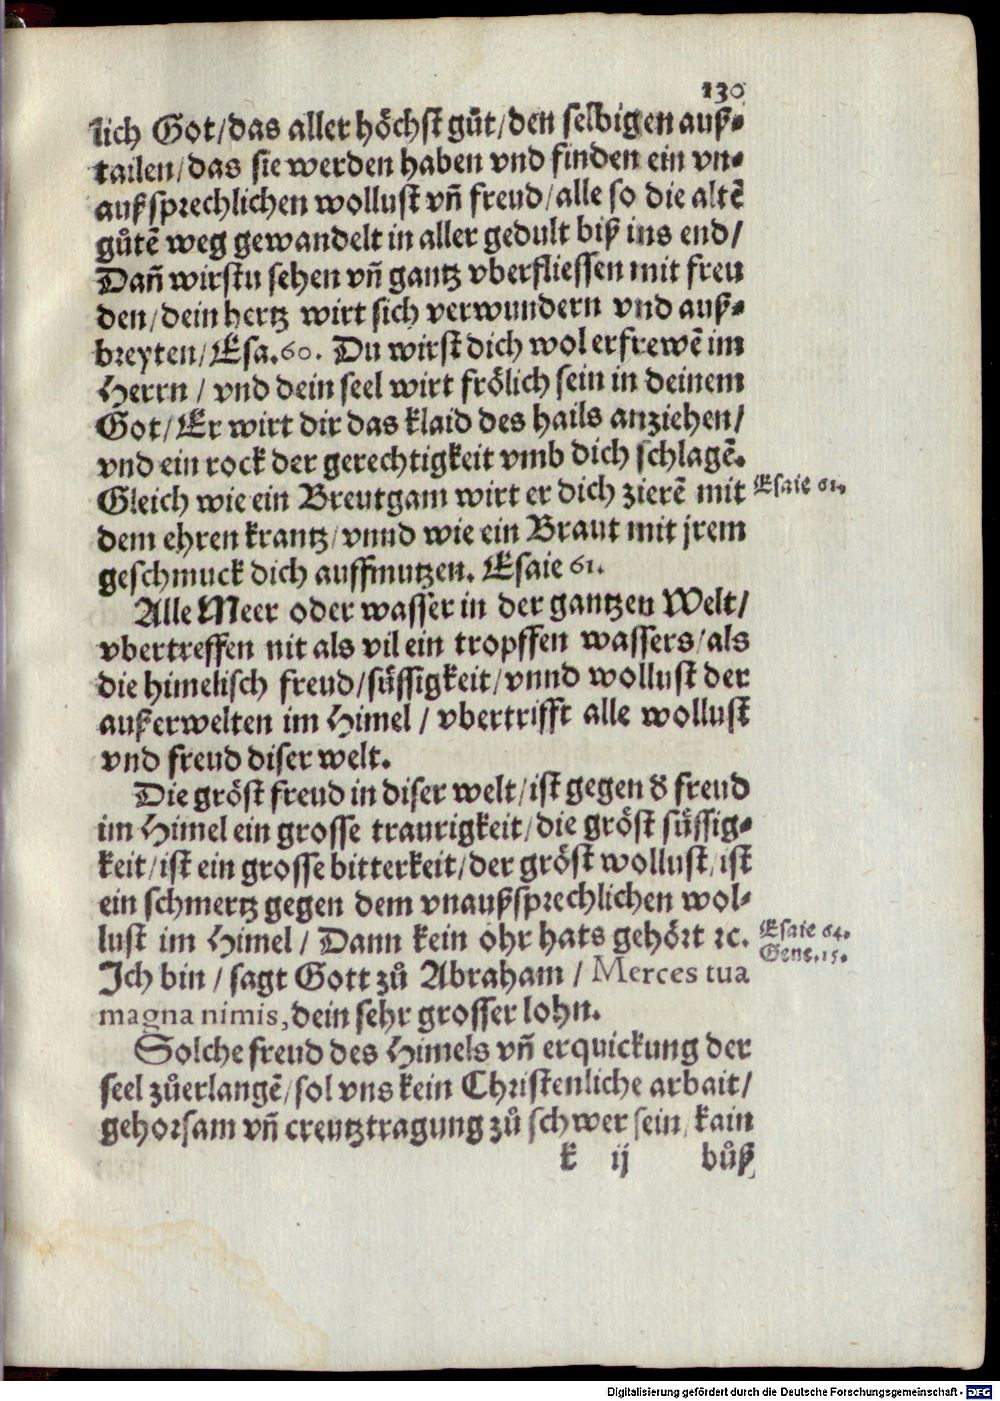 130
lich Got/das aller höchst gůt/den selbigen auß-
tailen/das sie werden haben vnd finden ein vn-
außsprechlichen wollust vñ freud/alle so die altẽ
gůtẽ weg gewandelt in aller gedult biß ins end/
Dañ wirstu sehen vñ gantz vberfliessen mit freu
den/dein hertz wirt sich verwundern vnd auß-
breyten/Esa.60. Du wirst dich wol erfrewẽ im
Herrn / vnd dein seel wirt frölich sein in deinem
Got/Er wirt dir das klaid des hails anziehen/
vnd ein rock der gerechtigkeit vmb dich schlagẽ.
Gleich wie ein Breutgam wirt er dich zierẽ mit
Esaie 61.
dem ehren krantz/vnnd wie ein Braut mit jrem
geschmuck dich auffmutzen. Esaie 61.
Alle Meer oder wasser in der gantzen Welt/
vbertreffen nit als vil ein tropffen wassers/als
die himelisch freud/süssigkeit/vnnd wollust der
außerwelten im Himel / vbertrifft alle wollust
vnd freud diser welt.
Die gröst freud in diser welt/ist gegen d' freud
im Himel ein grosse traurigkeit/die gröst süssig-
keit/ist ein grosse bitterkeit/der gröst wollust/ist
ein schmertz gegen dem vnaußsprechlichen wol-
lust im Himel / Dann kein ohr hats gehört ꝛc.
Esaie 64.
Gene.15.
Ich bin / sagt Gott zů Abraham / Merces tua
magna nimis, dein sehr grosser lohn.
Solche freud des Himels vñ erquickung der
seel zůerlangẽ/sol vns kein Christenliche arbait/
gehorsam vñ creutztragung zů schwer sein/kain
k ij
bůß
Digitalisierung gefördert durch die Deutsche Forschungsgemeinschaft - DFG